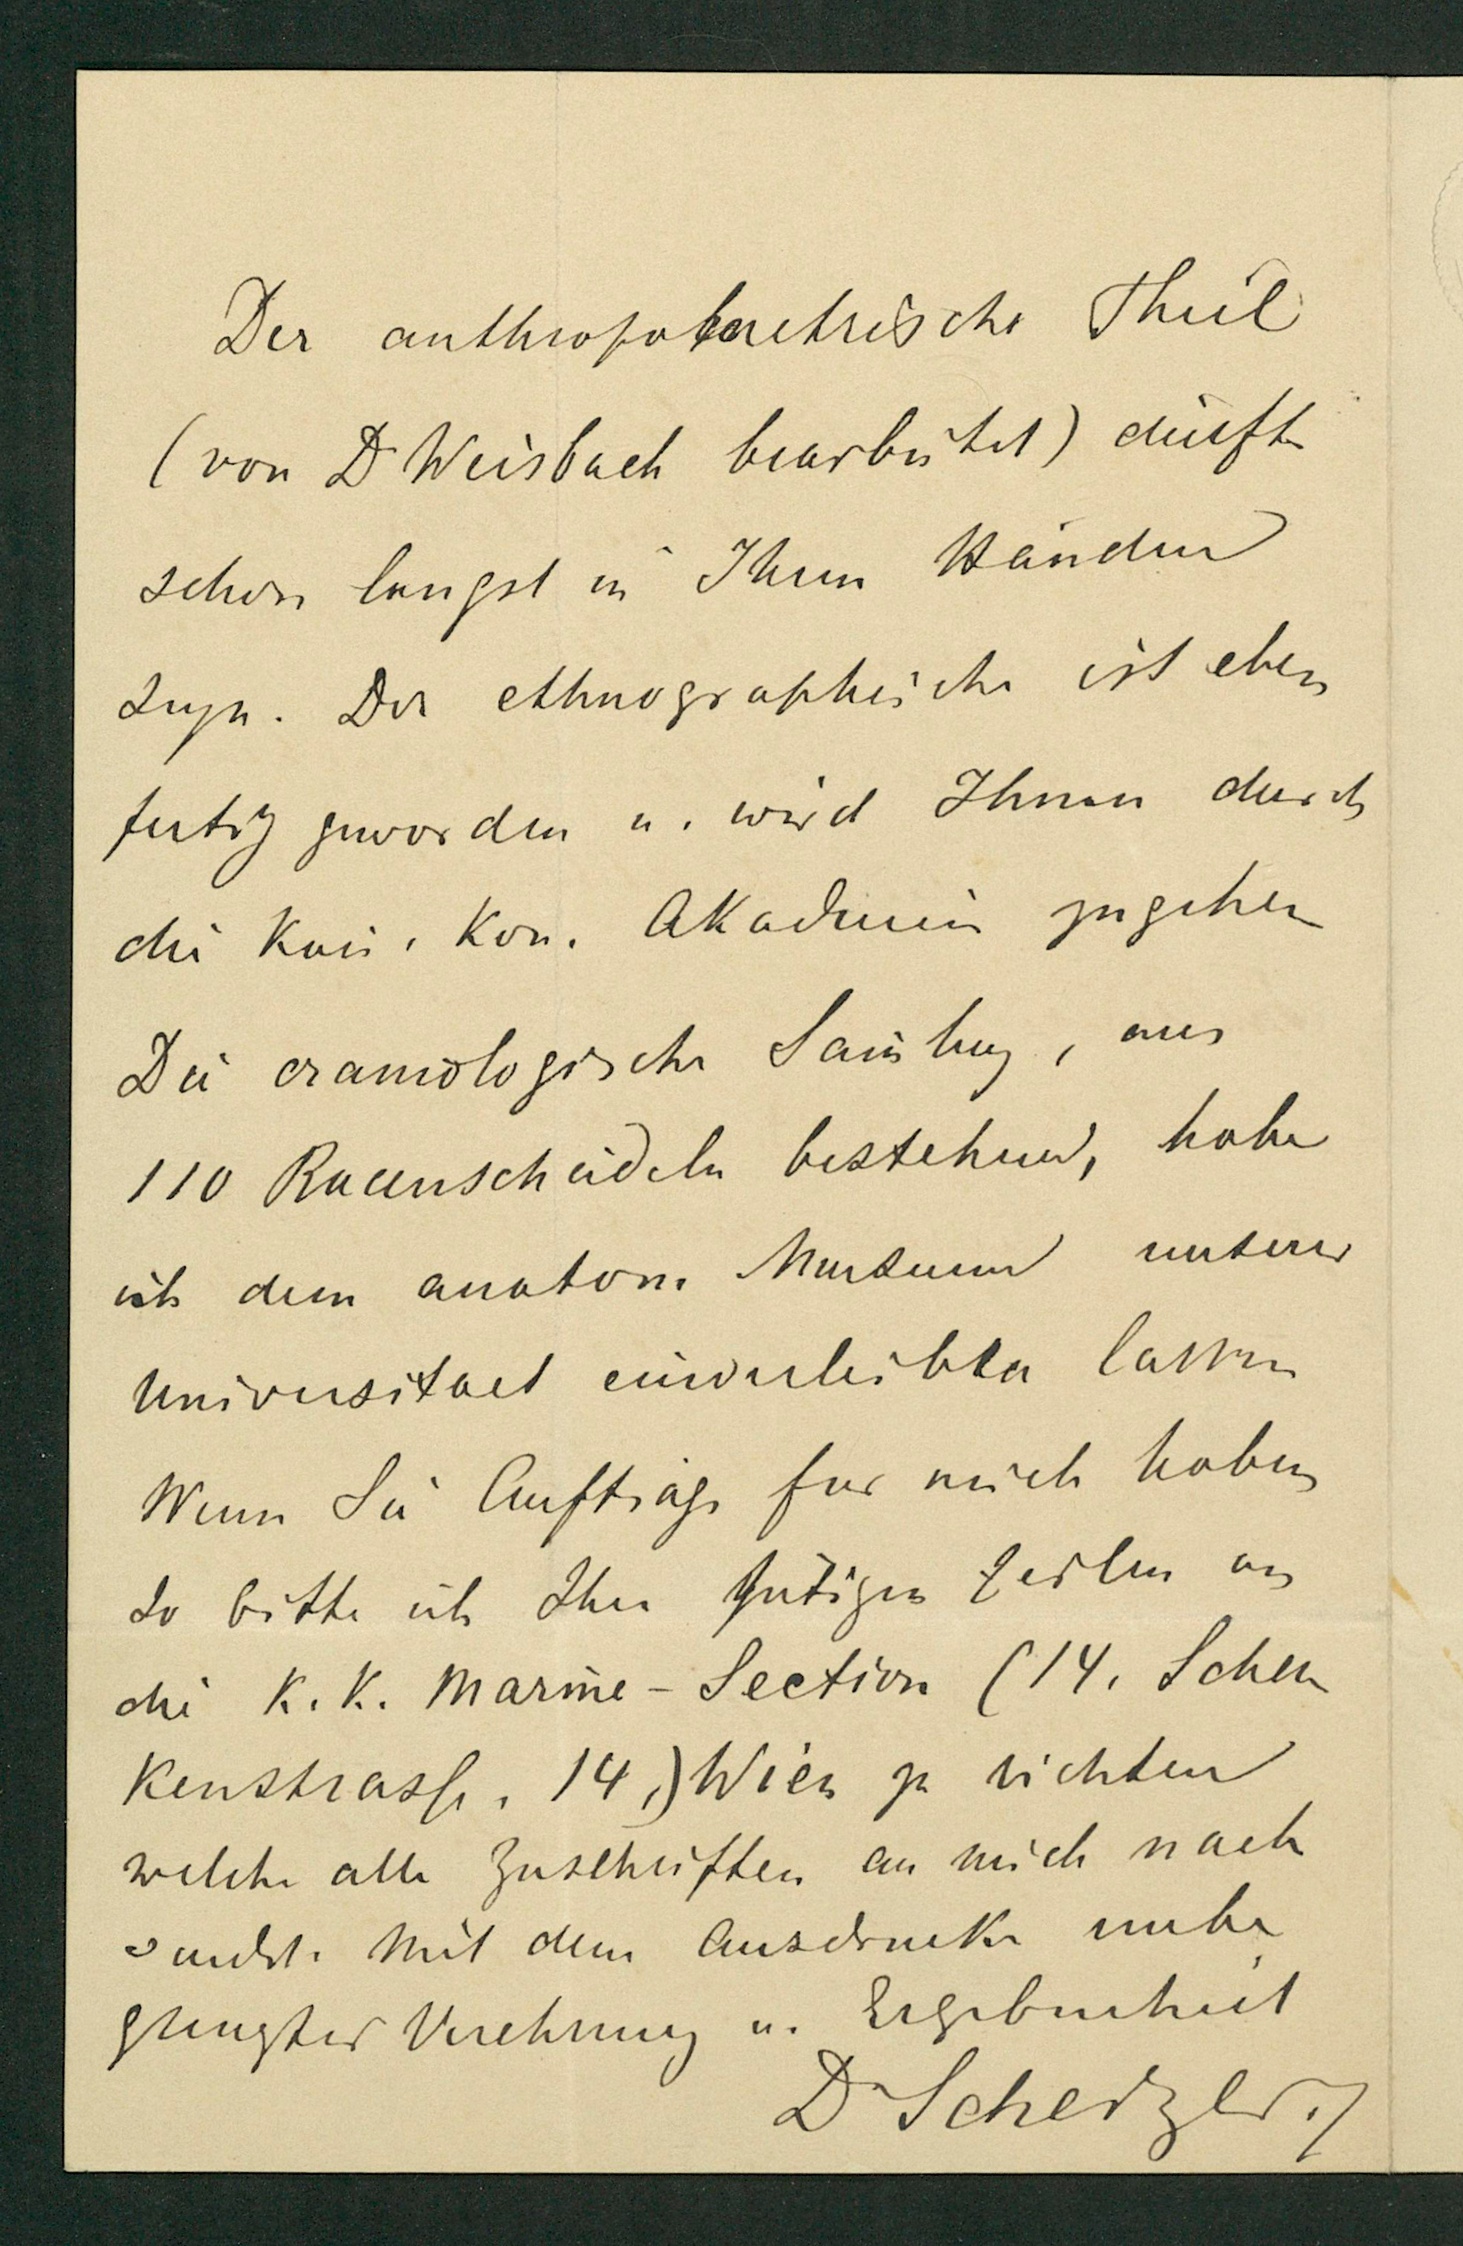 Der anthropometrische Theil
(von Dr Weisbach bearbeitet) dürfte
schon langst in Ihren Händen
seyn. Der ethnographische ist eben
fertig geworden u. wird Ihnen durch
die Kais. Kön. Akademie zugehen
Die craniologische Samlung, aus
110 Racenschädeln bestehend, habe
ich dem anatom. Museum unserer
Universitaet einverleiben lassen
Wenn Sie Aufträge fur mich haben
so bitte ich Ihre gütigen Zeilen an
die K. K. Marine-Section (14. Schen
Kenstrasse. 14.) Wien zu richten
welche alle Zuschriften an mich nach
sendet. Mit dem Ausdrucke unbe
grenzter Verehrung u. Ergebenheit
Dr Scherzer